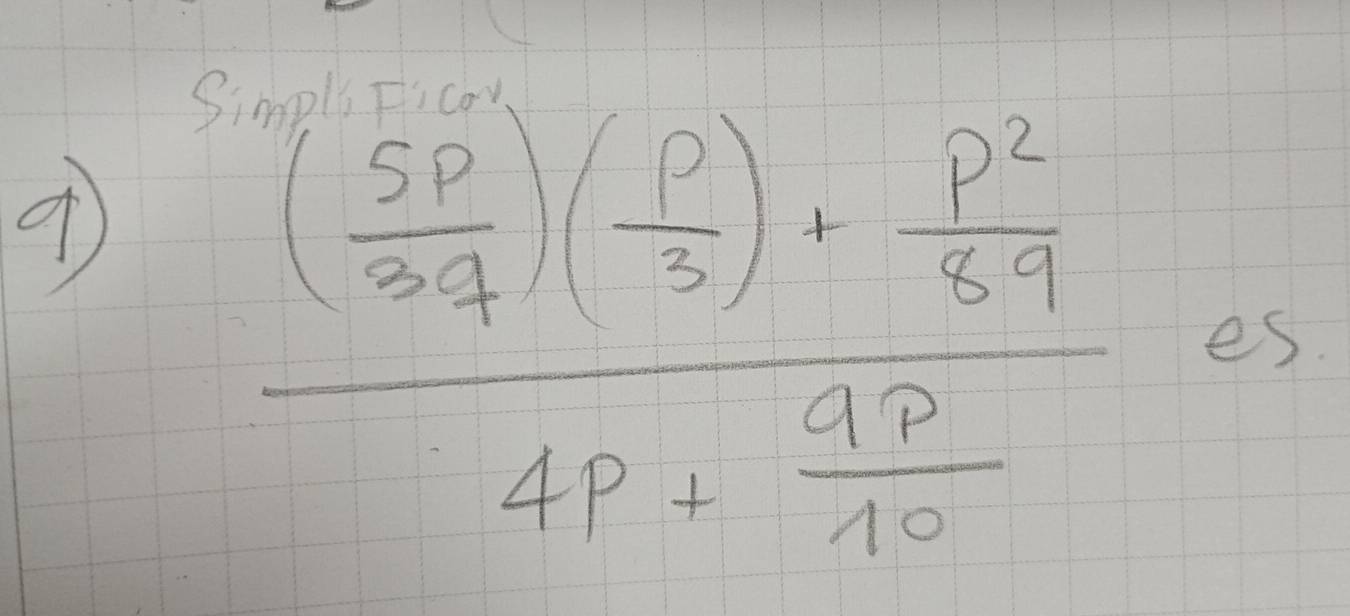 Simplificar
9) \frac{\left(\frac{5p}{3q}\right)\left(\frac{p}{3}\right)+\frac{p^2}{8q}}{4p+\frac{9p}{10}} es.